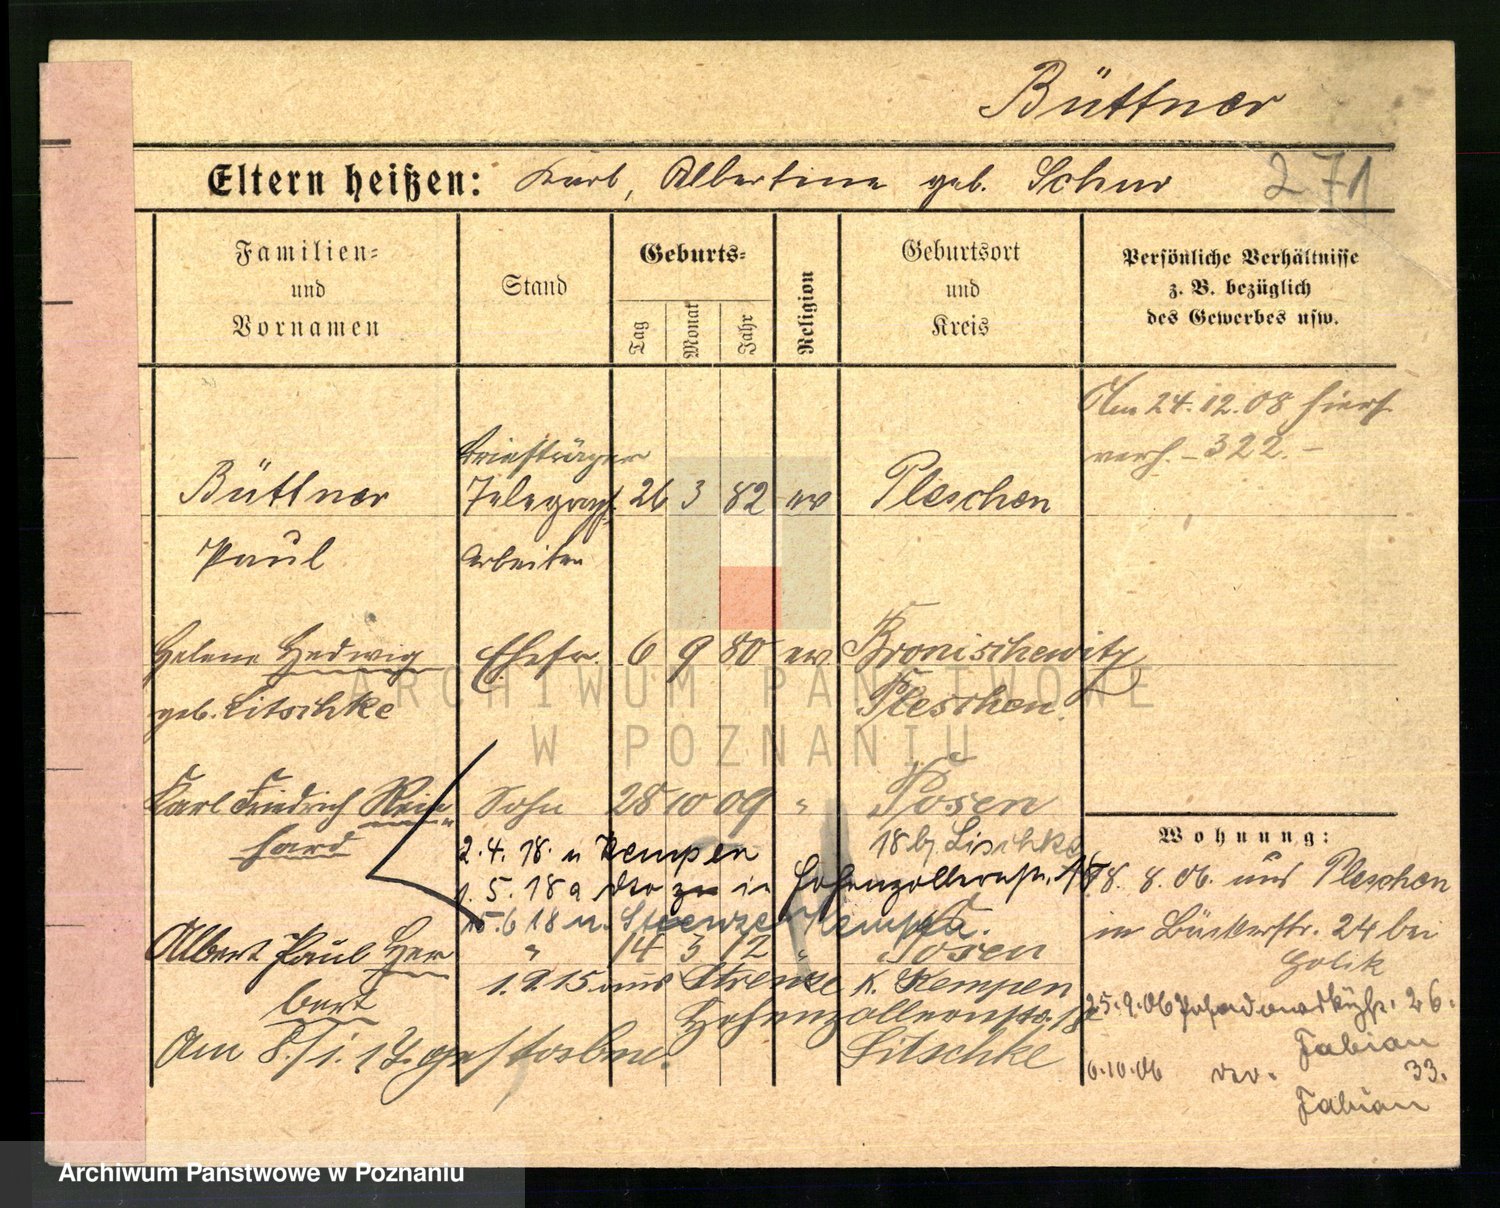 Büttner
271
Eltern heißen: Karl, Albertine geb. Schur
Familien= und Vornamen
Stand
Geburts=
Tag
Monat
Jahr
Religion
Geburtsort und Kreis
Persönliche Verhältnisse
z. B. bezüglich
des Gewerbes usw.
Am 24.12.08 hiers.
verh. - 322. -
Briefträger
Büttner Telegraph. 26 3 82 ev Pleschen
Paul Arbeiter
Helene Hedwig Ehefr. 6 9 80 ev Bronischewitz
geb. Litschke Pleschen.
Karl Friedrich Rein= Sohn 28 10 09 " Posen
hard
18 bj Lischke
2.4.18. n Kempen
1.5.18 a dto zu in Hohenzollernstr. 18
15.6 18 n. Strenze Kempen.
Albert Paul Her " 14 3 12 " Posen
bert
1.9.15 aus Strenze K. Kempen
Hohenzollernstr. 18
Am 8./1.17. gestorben.
Litschke
Wohnung:
8. 8. 06. aus Pleschen
in Bäckerstr. 24 bei
Golik
25.9.06 26.
Fabian
6.10.06 dto. 33.
Fabian
ARCHIWUM PAŃSTWOWE
W POZNANIU
Archiwum Państwowe w Poznaniu